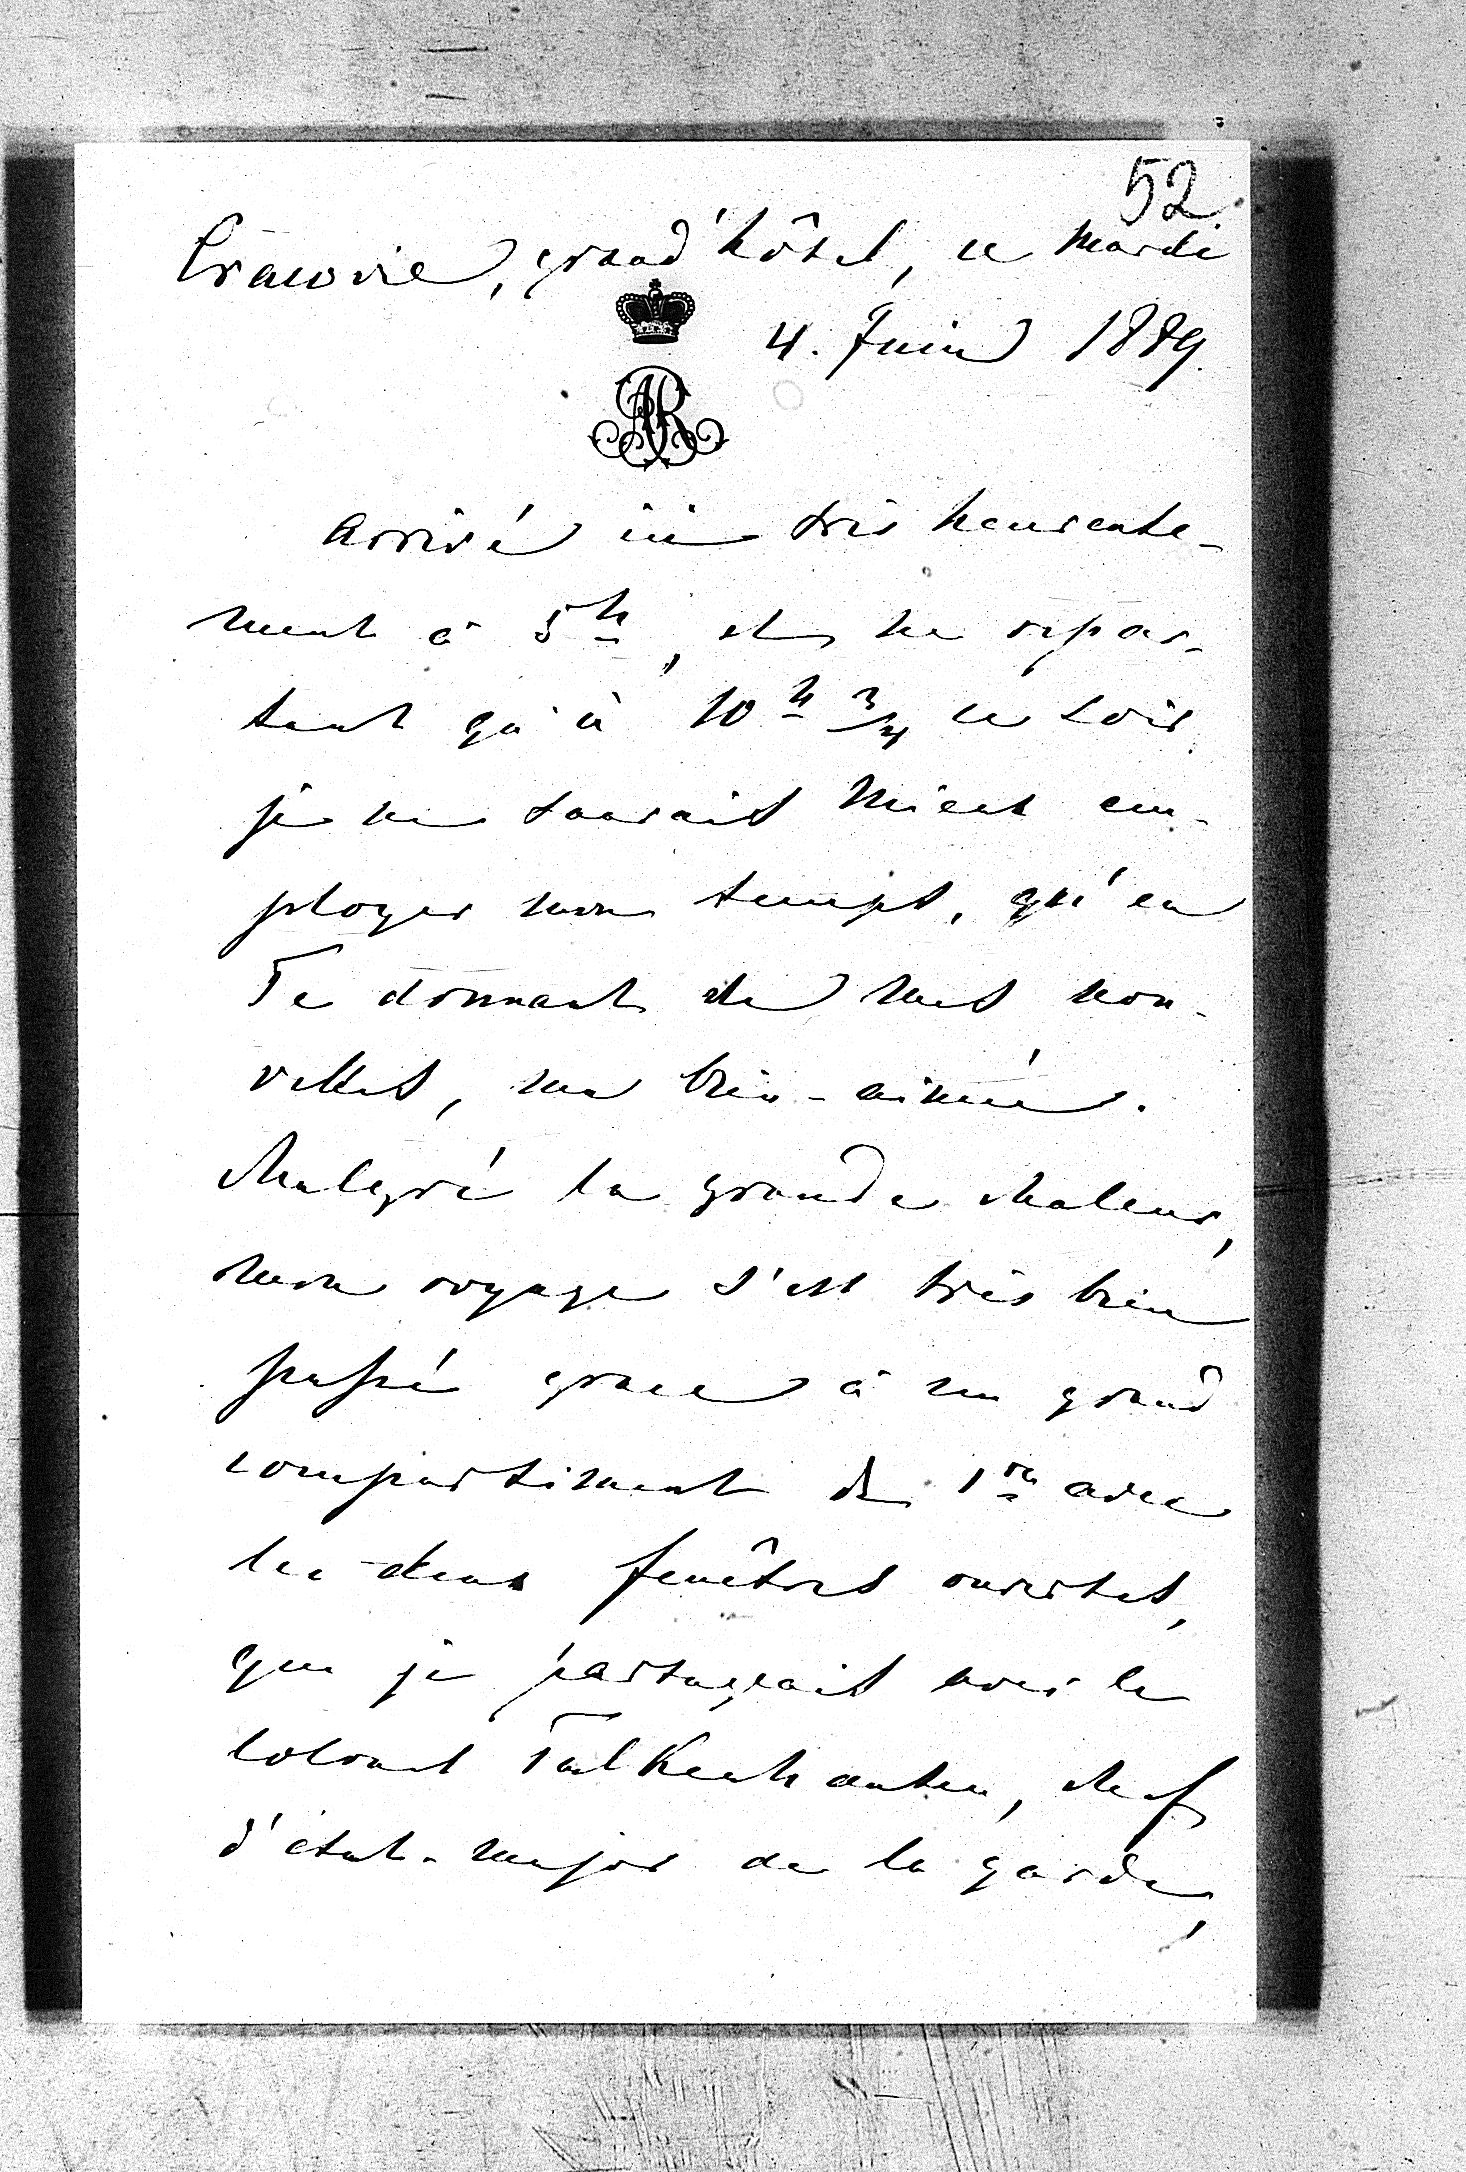 52
Cracovie, grand'hôtel, ce Mardi
4. Juin 1889.
AR
Arrivé ici très heureuse-
ment à 5h, et ne repar-
tant qu'à 10h 3/4 ce soir,
je ne saurais mieux em-
ployer mon temps, qu'en
Te donnant de mes nou-
velles, ma bien-aimée.
Malgré la grande chaleur,
mon voyage s'est très bien
passé grace à un grand
compartiment de 1re avec
les deux fenêtres ouvertes,
que je partageais avec le
colonel Falkenhausen, chef
d'état-major de la garde,